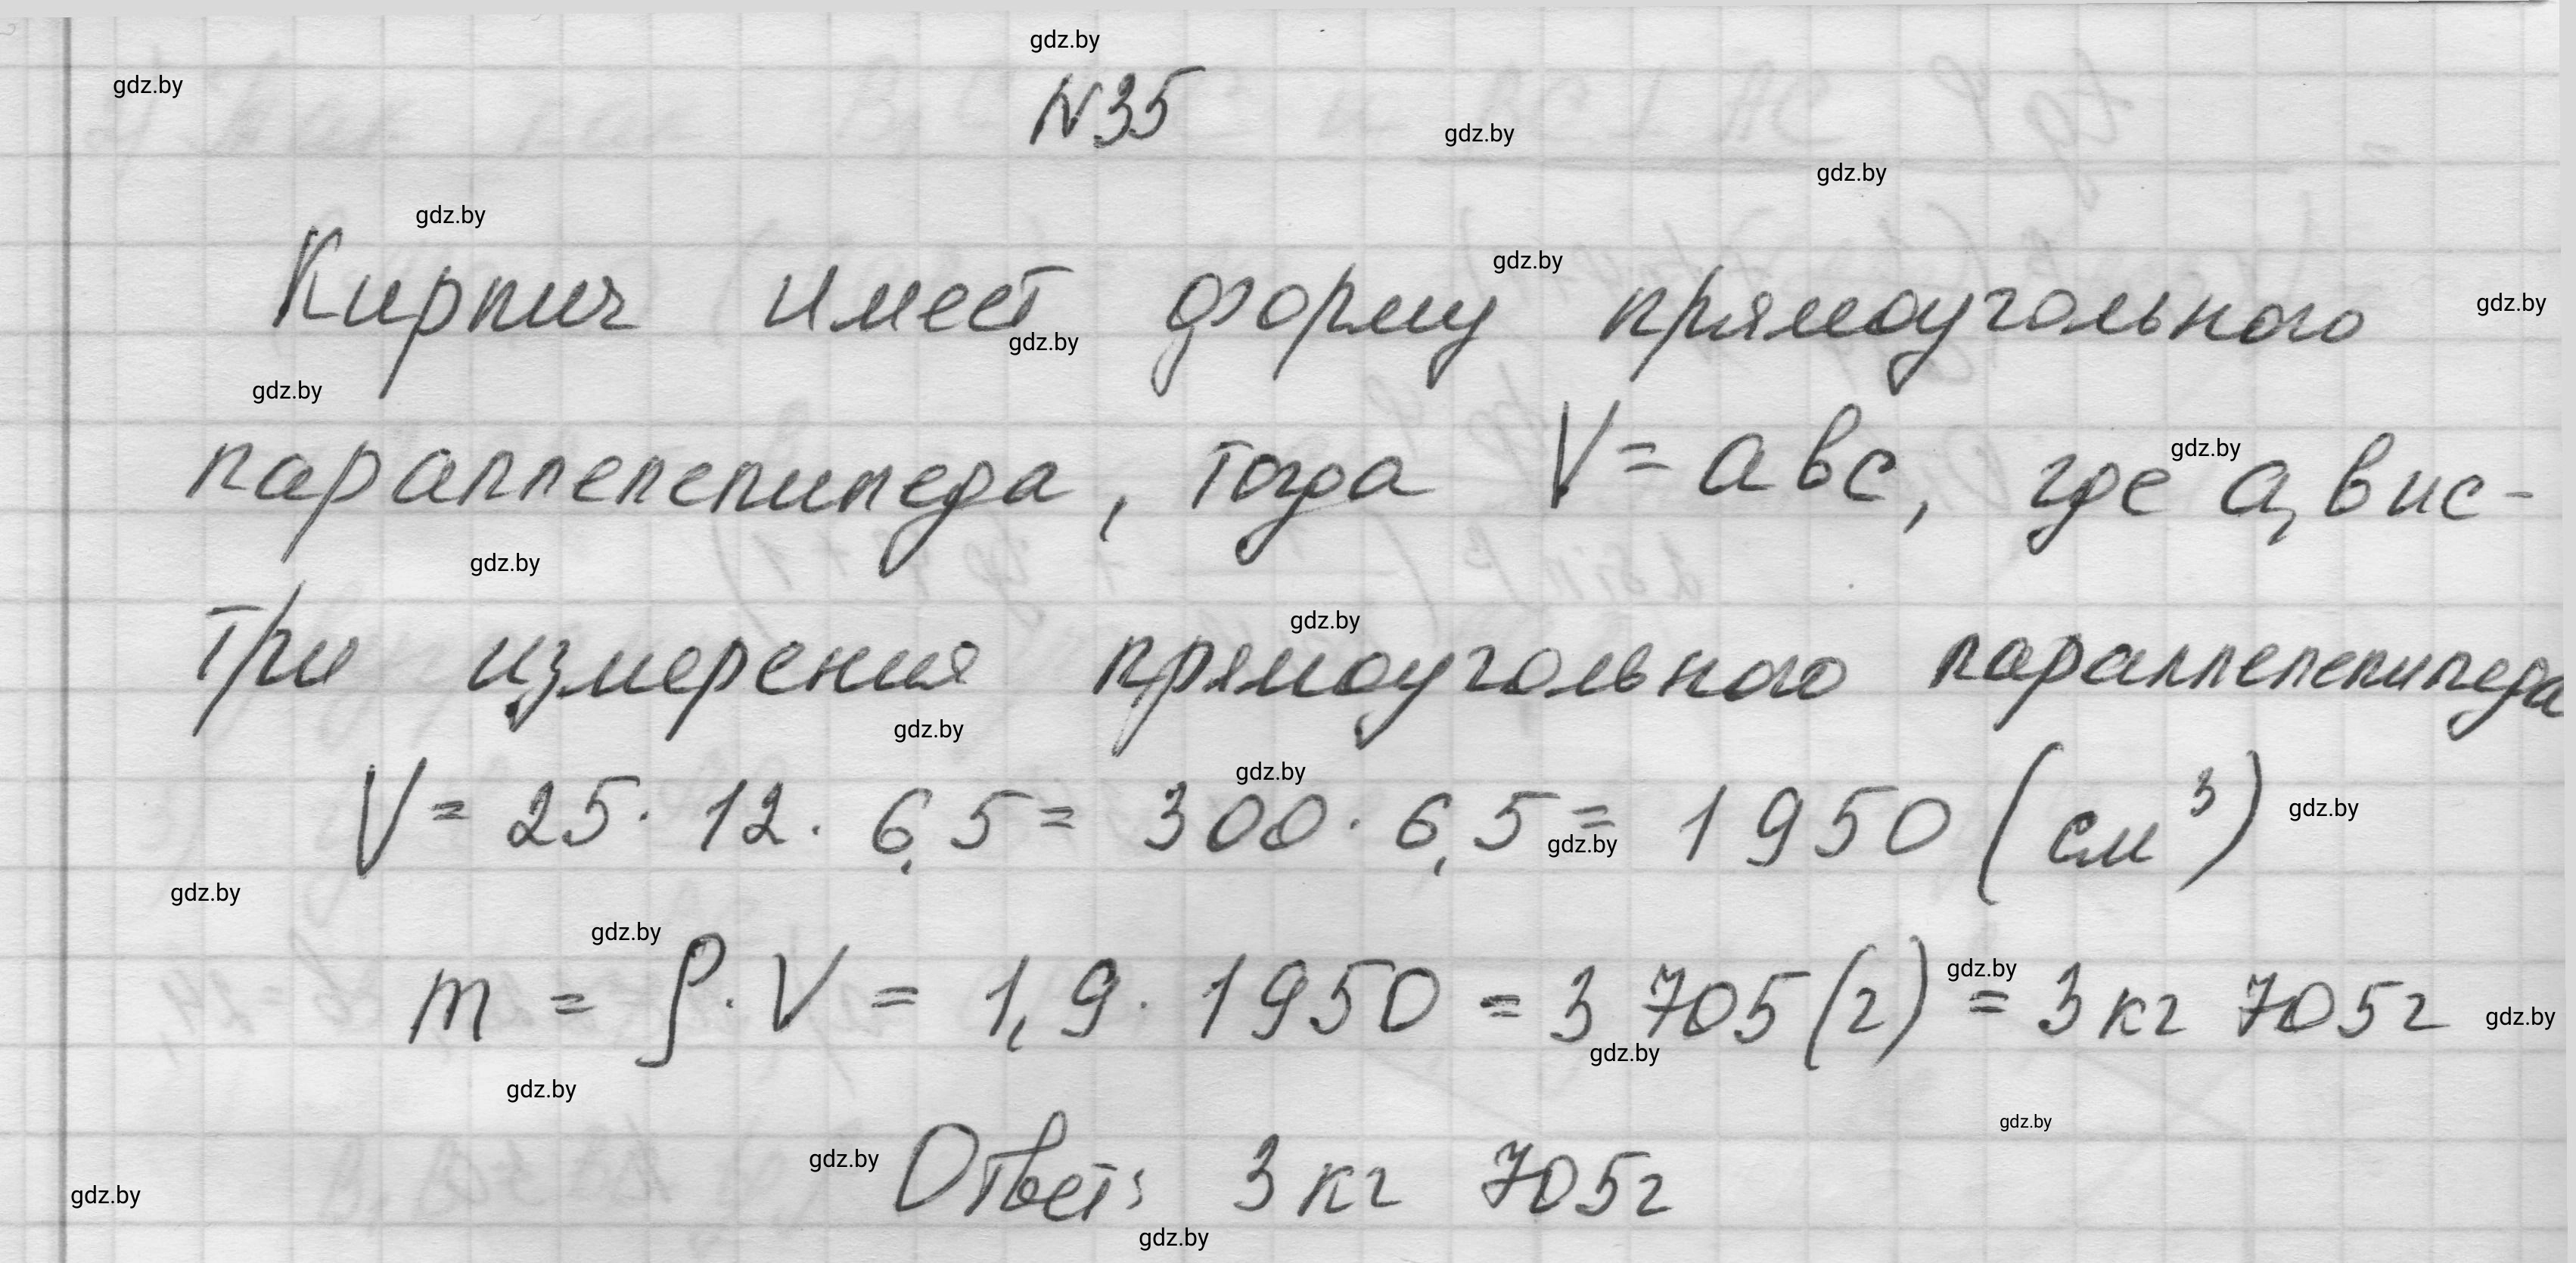 gdz.by
gdz.by
N35
gdz.by
gdz.by
gdz.by
gdz.by
Кирпич имеет форму прямоугольного
gdz.by
gdz.by
gdz.by
параллелепипеда, тогда V = aвc, где a, в и c -
gdz.by
gdz.by
три измерения прямоугольного параллелепипеда
gdz.by
gdz.by
gdz.by
V = 25 · 12 · 6,5 = 300 · 6,5 = 1950 (см³)
gdz.by
gdz.by
gdz.by
gdz.by
m = ρ · V = 1,9 · 1950 = 3 705 (г) = 3 кг 705 г
gdz.by
gdz.by
gdz.by
gdz.by
gdz.by
Ответ: 3 кг 705 г
gdz.by
gdz.by
gdz.by